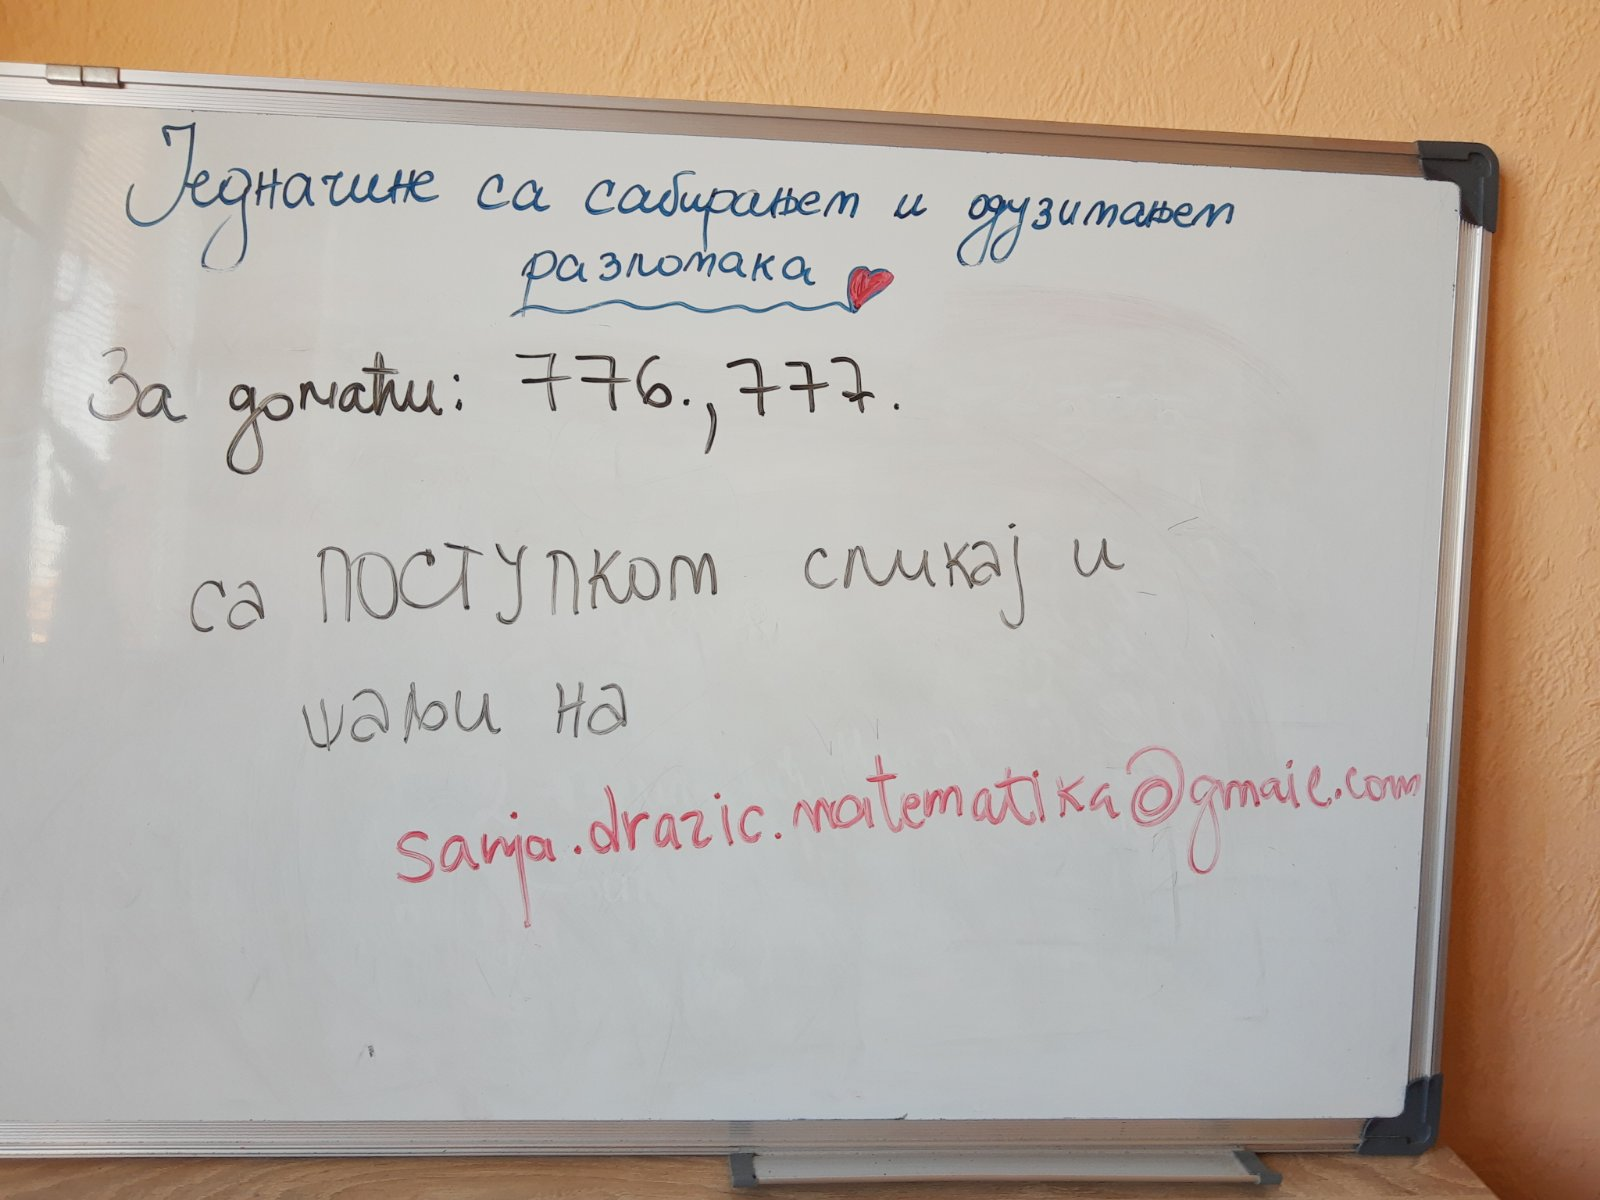 Једначине са сабирањем и одузимањем
разломака
За домаћи: 776., 777.
са ПОСТУПКОМ сликај и
шаљи на
sanja.drazic.matematika@gmail.com